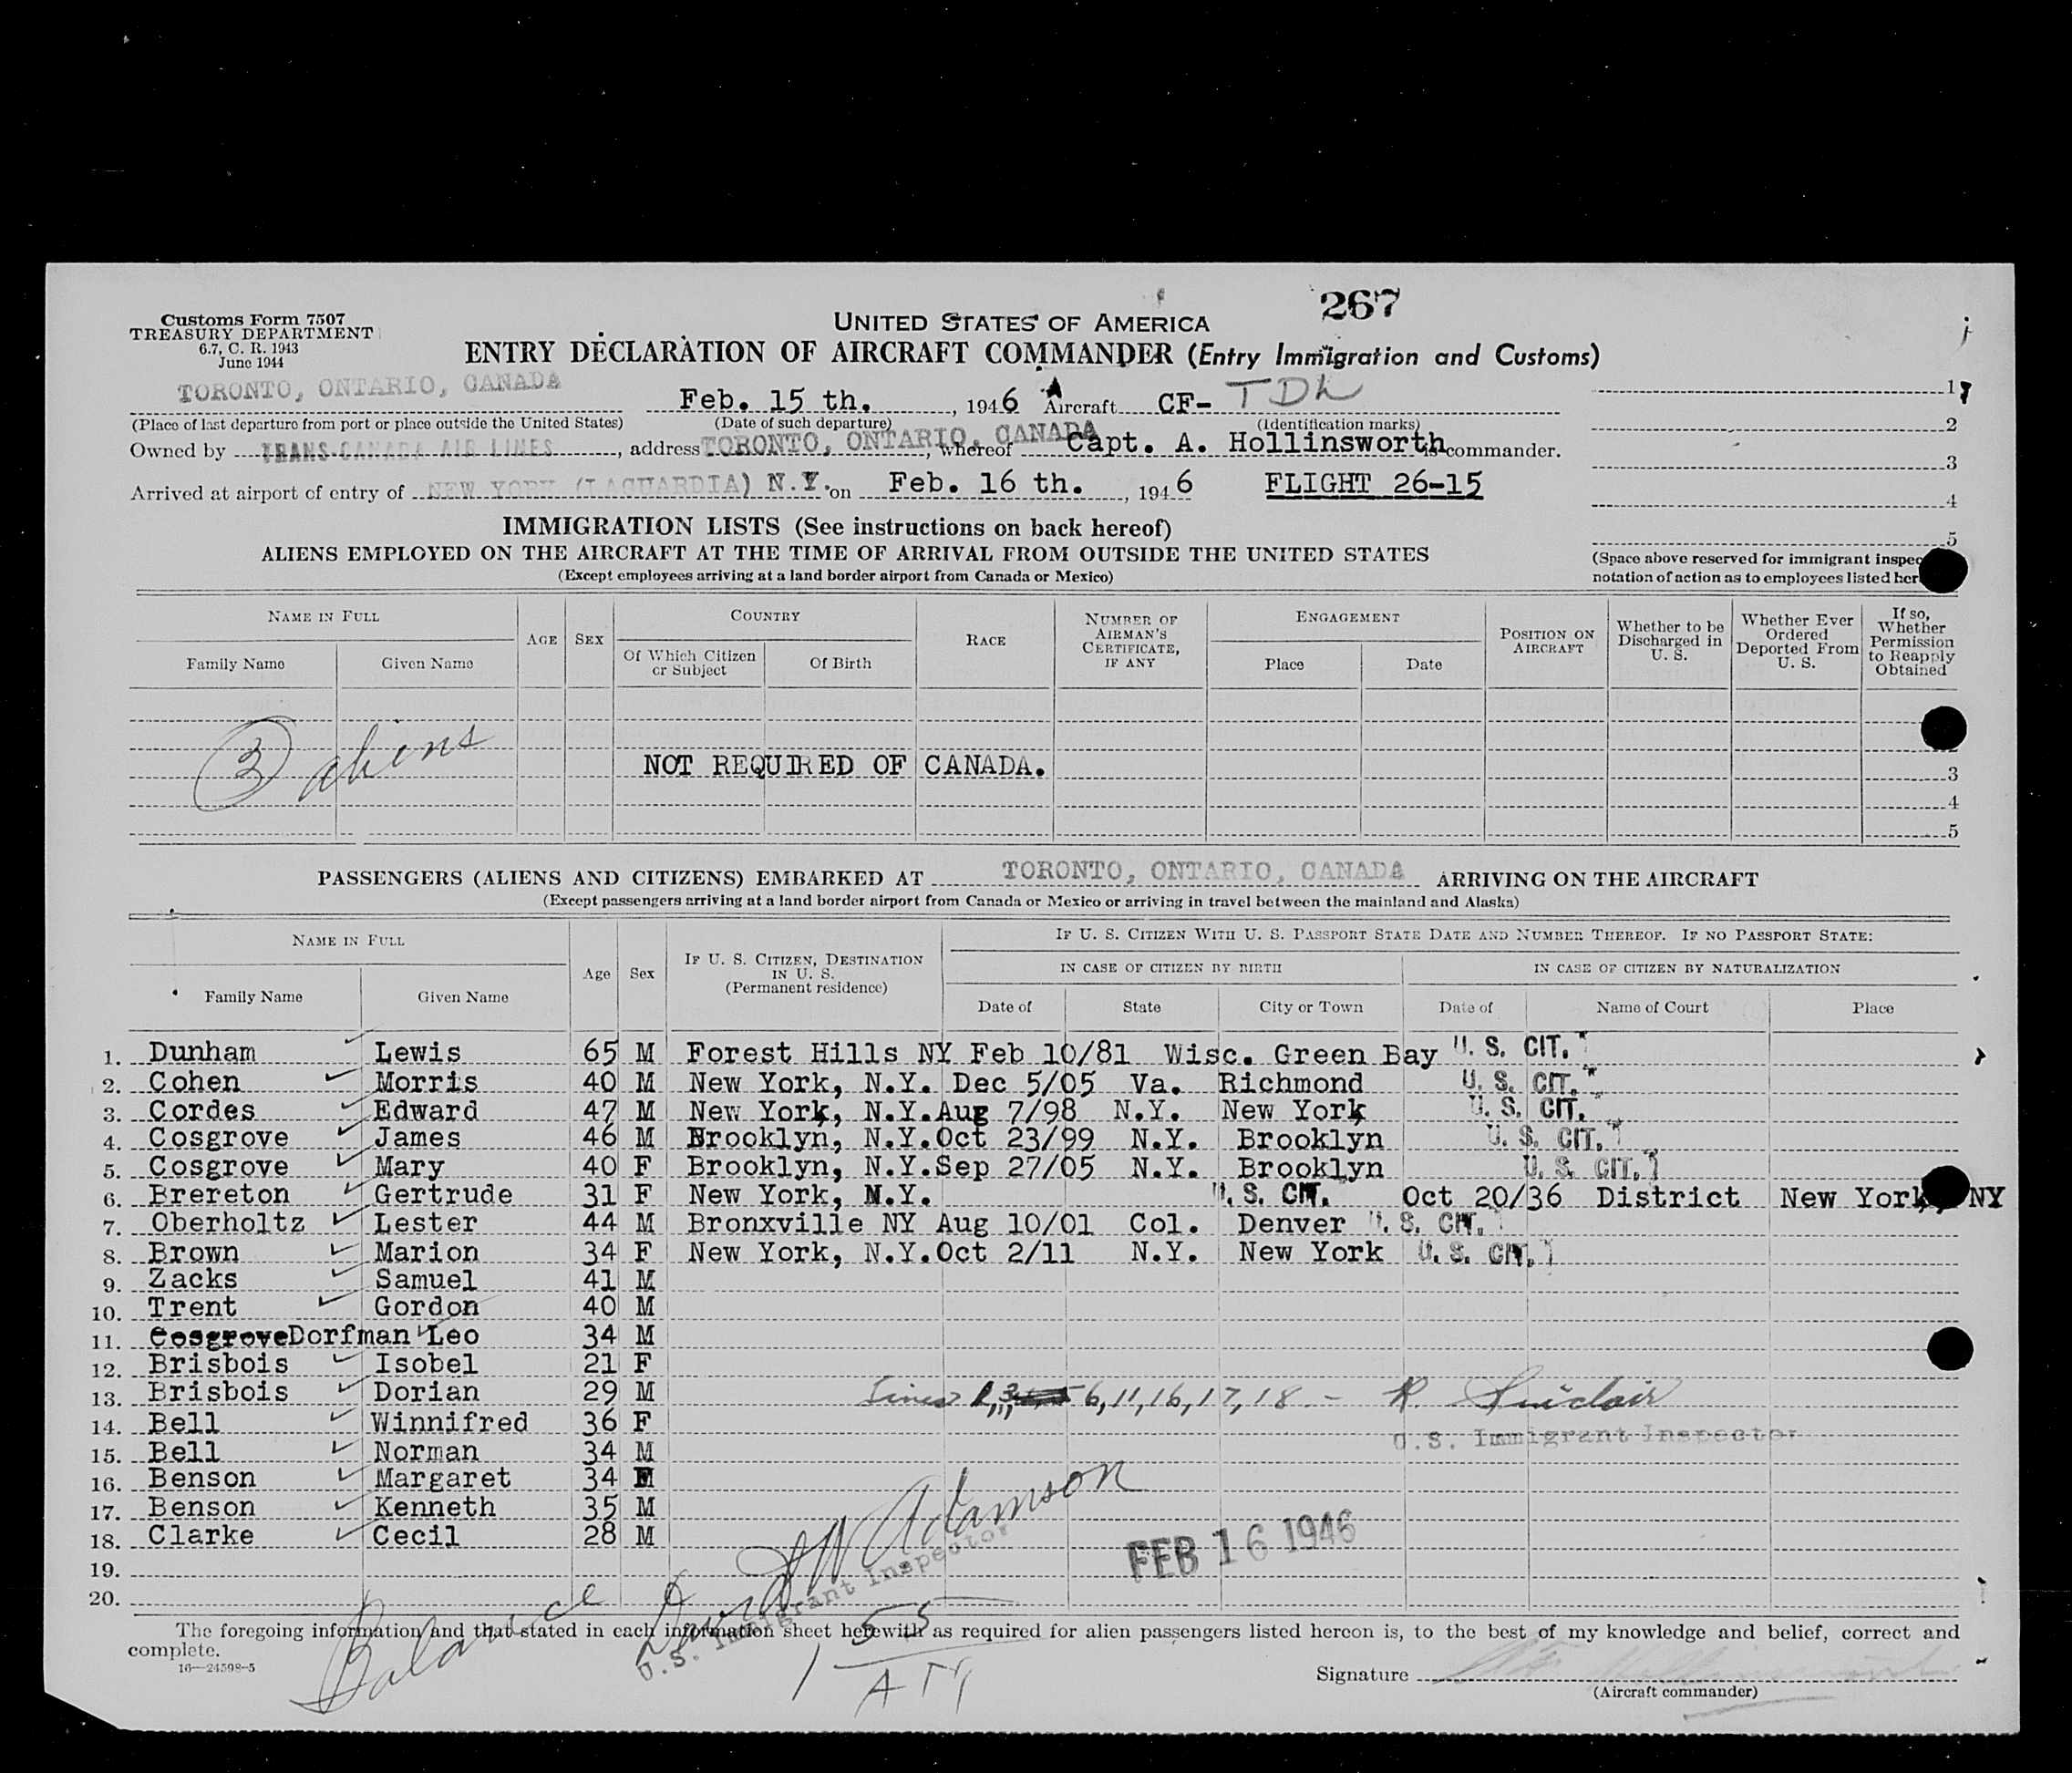 267
Customs Form 7507
TREASURY DEPARTMENT
6.7, C. R. 1943
June 1944
UNITED STATES OF AMERICA
ENTRY DECLARATION OF AIRCRAFT COMMANDER (Entry Immigration and Customs)
TORONTO, ONTARIO, CANADA Feb. 15 th., 1946 Aircraft CF-TDL
(Place of last departure from port or place outside the United States) (Date of such departure) (Identification marks)
Owned by TRANS-CANADA AIR LINES, address TORONTO, ONTARIO, CANADA, whereof Capt. A. Hollinsworth is commander.
Arrived at airport of entry of NEW YORK (LAGUARDIA) N.Y. on Feb. 16 th., 1946 FLIGHT 26-15
1
2
3
4
5
(Space above reserved for immigrant inspec
notation of action as to employees listed her
IMMIGRATION LISTS (See instructions on back hereof)
ALIENS EMPLOYED ON THE AIRCRAFT AT THE TIME OF ARRIVAL FROM OUTSIDE THE UNITED STATES
(Except employees arriving at a land border airport from Canada or Mexico)
NAME IN FULL AGE SEX COUNTRY RACE NUMBER OF AIRMAN'S CERTIFICATE, IF ANY ENGAGEMENT POSITION ON AIRCRAFT Whether to be Discharged in U. S. Whether Ever Ordered Deported From U. S. If so, Whether Permission to Reapply Obtained
Family Name Given Name Of Which Citizen or Subject Of Birth Place Date
3 aliens
NOT REQUIRED OF CANADA.
3
4
5
PASSENGERS (ALIENS AND CITIZENS) EMBARKED AT TORONTO, ONTARIO, CANADA ARRIVING ON THE AIRCRAFT
(Except passengers arriving at a land border airport from Canada or Mexico or arriving in travel between the mainland and Alaska)
NAME IN FULL Age Sex IF U. S. CITIZEN, DESTINATION IN U. S. (Permanent residence) IF U. S. CITIZEN WITH U. S. PASSPORT STATE DATE AND NUMBER THEREOF. IF NO PASSPORT STATE:
IN CASE OF CITIZEN BY BIRTH IN CASE OF CITIZEN BY NATURALIZATION
Family Name Given Name Date of State City or Town Date of Name of Court Place
1. Dunham Lewis 65 M Forest Hills NY Feb 10/81 Wisc. Green Bay U. S. CIT.
2. Cohen Morris 40 M New York, N.Y. Dec 5/05 Va. Richmond U. S. CIT.
3. Cordes Edward 47 M New York, N.Y. Aug 7/98 N.Y. New York U. S. CIT.
4. Cosgrove James 46 M Brooklyn, N.Y. Oct 23/99 N.Y. Brooklyn U. S. CIT.
5. Cosgrove Mary 40 F Brooklyn, N.Y. Sep 27/05 N.Y. Brooklyn U. S. CIT.
6. Brereton Gertrude 31 F New York, N.Y. U. S. CIT. Oct 20/36 District New York, NY
7. Oberholtz Lester 44 M Bronxville NY Aug 10/01 Col. Denver U. S. CIT.
8. Brown Marion 34 F New York, N.Y. Oct 2/11 N.Y. New York U. S. CIT.
9. Zacks Samuel 41 M
10. Trent Gordon 40 M
11. Cosgrove Dorfman Leo 34 M
12. Brisbois Isobel 21 F
13. Brisbois Dorian 29 M Lines 6, 11, 16, 17, 18 - R. Sinclair
14. Bell Winnifred 36 F
U.S. Immigrant Inspector
15. Bell Norman 34 M
16. Benson Margaret 34 F
17. Benson Kenneth 35 M
18. Clarke Cecil 28 M
19.
20.
FEB 16 1946
Balance David W Adamson
U.S. Immigrant Inspector
The foregoing information and that stated in each information sheet herewith as required for alien passengers listed hereon is, to the best of my knowledge and belief, correct and
complete.
16—24598-5
Signature
(Aircraft commander)